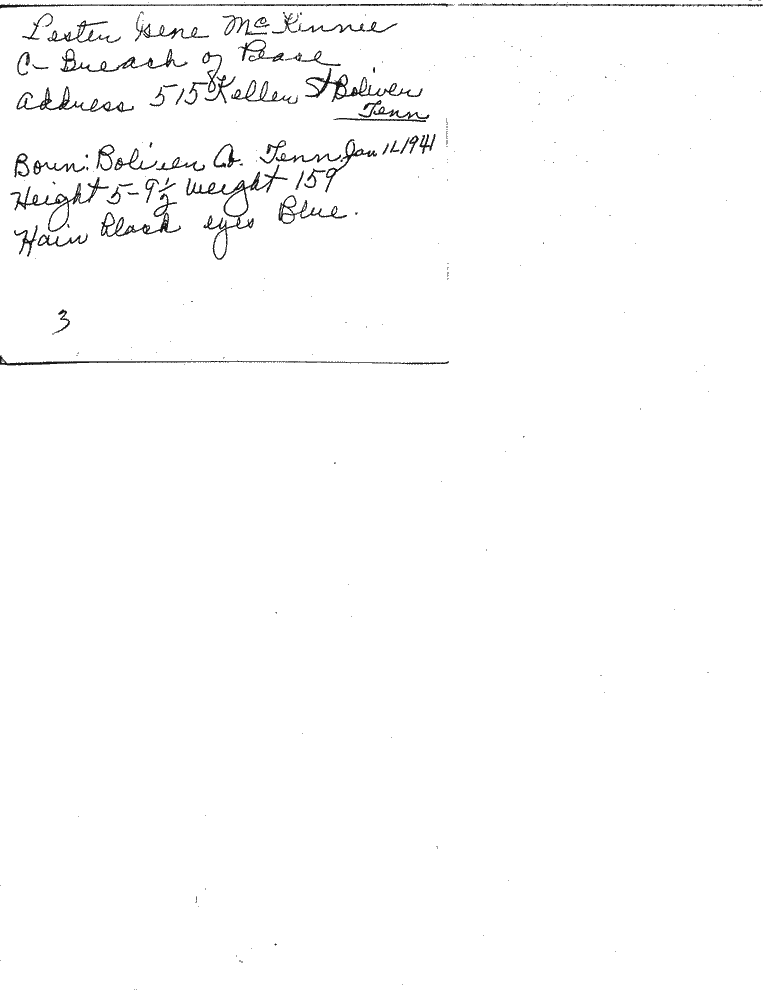 Lester Gene McKinnie
C- Breach of Pease
address 515 Keller St Boliver
Tenn
Born: Boliver Co. Tenn Jan 1941
Height 5-9½ weight 159
Hair Black eyes Blue.
3